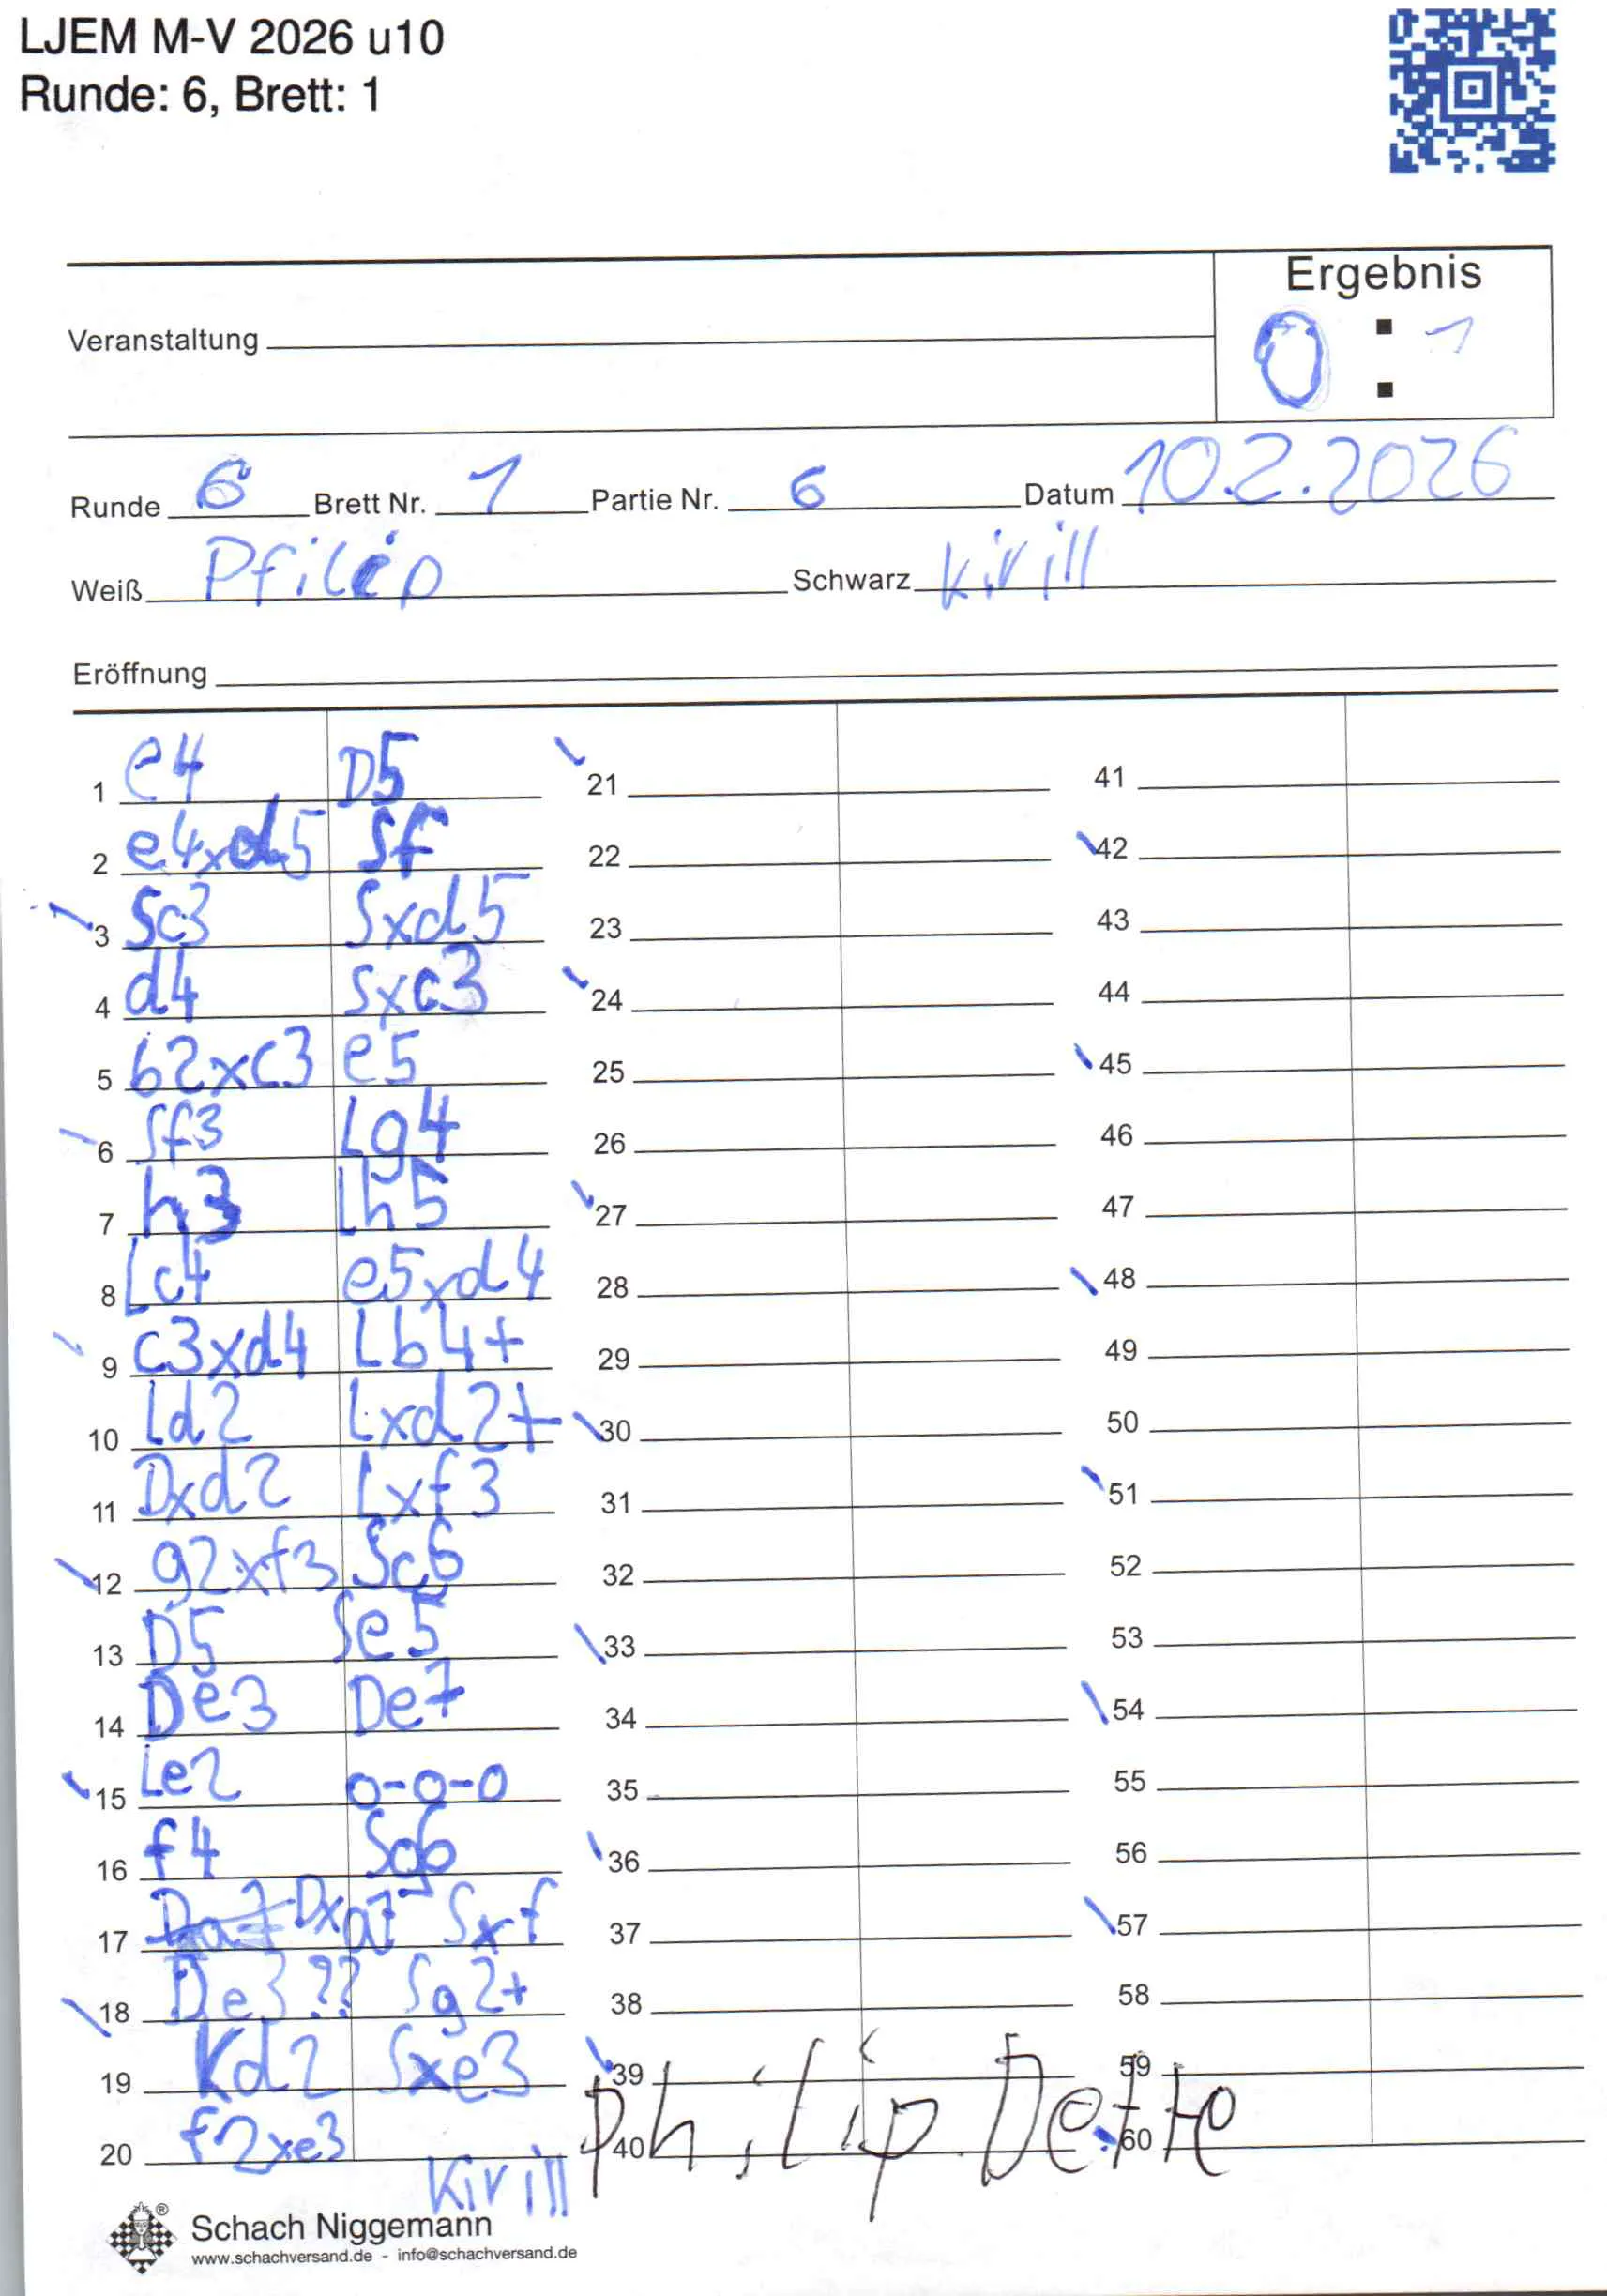 LJEM M-V 2026 u10
Runde: 6, Brett: 1
Ergebnis
Veranstaltung
0 : 1
Runde 6 Brett Nr. 1 Partie Nr. 6 Datum 10.2.2026
Weiß Pfilip Schwarz Kirill
Eröffnung
1 e4 D5 21 41
2 e4xd5 Sf 22 42
3 Sc3 Sxd5 23 43
4 d4 Sxc3 24 44
5 b2xc3 e5 25 45
6 Sf3 Lg4 26 46
7 h3 Lh5 27 47
8 Lc4 e5xd4 28 48
9 c3xd4 Lb4+ 29 49
10 Ld2 Lxd2+ 30 50
11 Dxd2 Lxf3 31 51
12 g2xf3 Sc6 32 52
13 D5 Se5 33 53
14 De3 De7 34 54
15 Le2 0-0-0 35 55
16 f4 36 56
17 Da7 Dxa7 Sxf 37 57
18 De3?? Sg2+ 38 58
19 Kd2 Sxe3 39 59
20 f2xe3 40 60
Kirill Philip Dette
Schach Niggemann
www.schachversand.de - info@schachversand.de